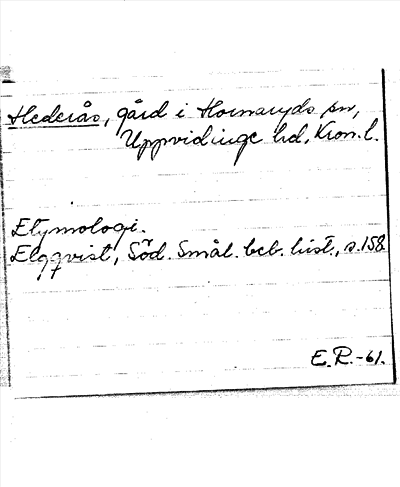 Hederås, gård i Hornaryds sn,
Uppvidinge hd, Kron.l.
Etymologi.
Elgqvist, Söd. Smål. beb. hist., s.158
E.R.-61.